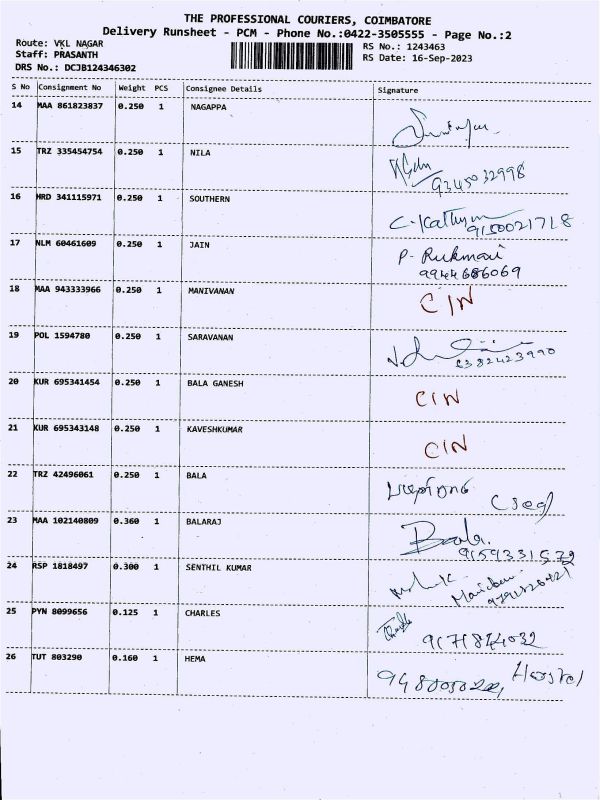 THE PROFESSIONAL COURIERS, COIMBATORE
Delivery Runsheet - PCM - Phone No.:0422-3505555 - Page No.:2
Route: VKL NAGAR
RS No.: 1243463
Staff: PRASANTH
RS Date: 16-Sep-2023
DRS No.: DCJB124346302
S No Consignment No Weight PCS Consignee Details Signature
14 MAA 861823837 0.250 1 NAGAPPA
15 TRZ 335454754 0.250 1 NILA
9345032998
16 HRD 341115971 0.250 1 SOUTHERN
9150021718
17 NLM 60461609 0.250 1 JAIN P. Rukmani
9944686069
18 MAA 943333966 0.250 1 MANIVANAN CIN
19 POL 1594780 0.250 1 SARAVANAN
6382423990
20 KUR 695341454 0.250 1 BALA GANESH CIN
21 KUR 695343148 0.250 1 KAVESHKUMAR CIN
22 TRZ 42496061 0.250 1 BALA
23 MAA 102140809 0.360 1 BALARAJ Baala.
9159331572
24 RSP 1818497 0.300 1 SENTHIL KUMAR
25 PYN 8099656 0.125 1 CHARLES
26 TUT 803290 0.160 1 HEMA